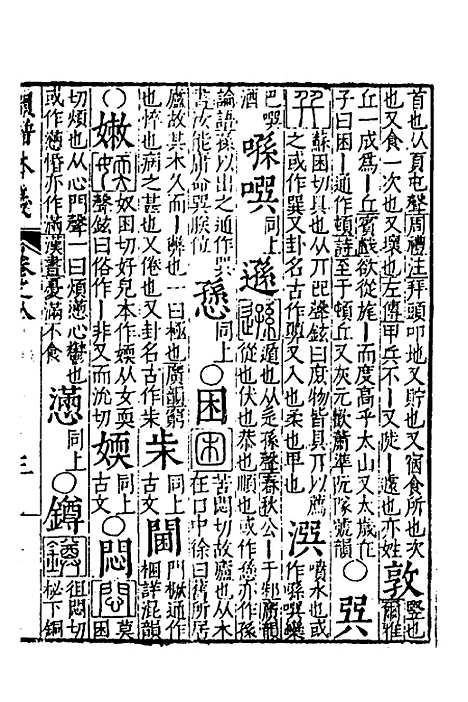 首也从頁屯聲周禮注拜頭叩地也又貯也又宿食所也次
也又食一次也又壞也左傳甲兵不一又陡一遽也亦姓
敦
豎也爾雅
丘一成爲一丘賓戲欲從旄一而度高乎太山又太歲在
子曰困一通作頓詩至于頓丘又灰元歕蕭準阮隊號韻
○巽
蘇困切具也从丌㔾聲鉉曰庶物皆具丌以薦
之或作巺又卦名古作顨又入也柔也卑也
潠
噴水也或作噀㗲欒
巴噀酒
㗲噀
同上
遜
遁也从辵孫聲春秋公一于邾廣韻
從也伏也恭也順也或作愻亦作孫
論語孫以出之通作巽
書汝能庸命巽朕位
愻
同上
○困
苦悶切故廬也从木
在口中徐曰舊所居
廬故其木久而一弊也一曰極也廣韻窮
也悴也病之甚也又倦也又卦名古作朱
朱
同上古文
閫
門橛通作梱詳混韻
○嫩
奴困切好皃本作媆从女耎
聲鉉曰俗作一非又而沇切
媆
同上古文
○悶
莫困
切煩也从心門聲一曰煩懣心鬱也
或作懣惛亦作滿漢書憂滿不食
懣
同上
○鐏
徂悶切
柲下銅
韻譜本義
卷之八
三